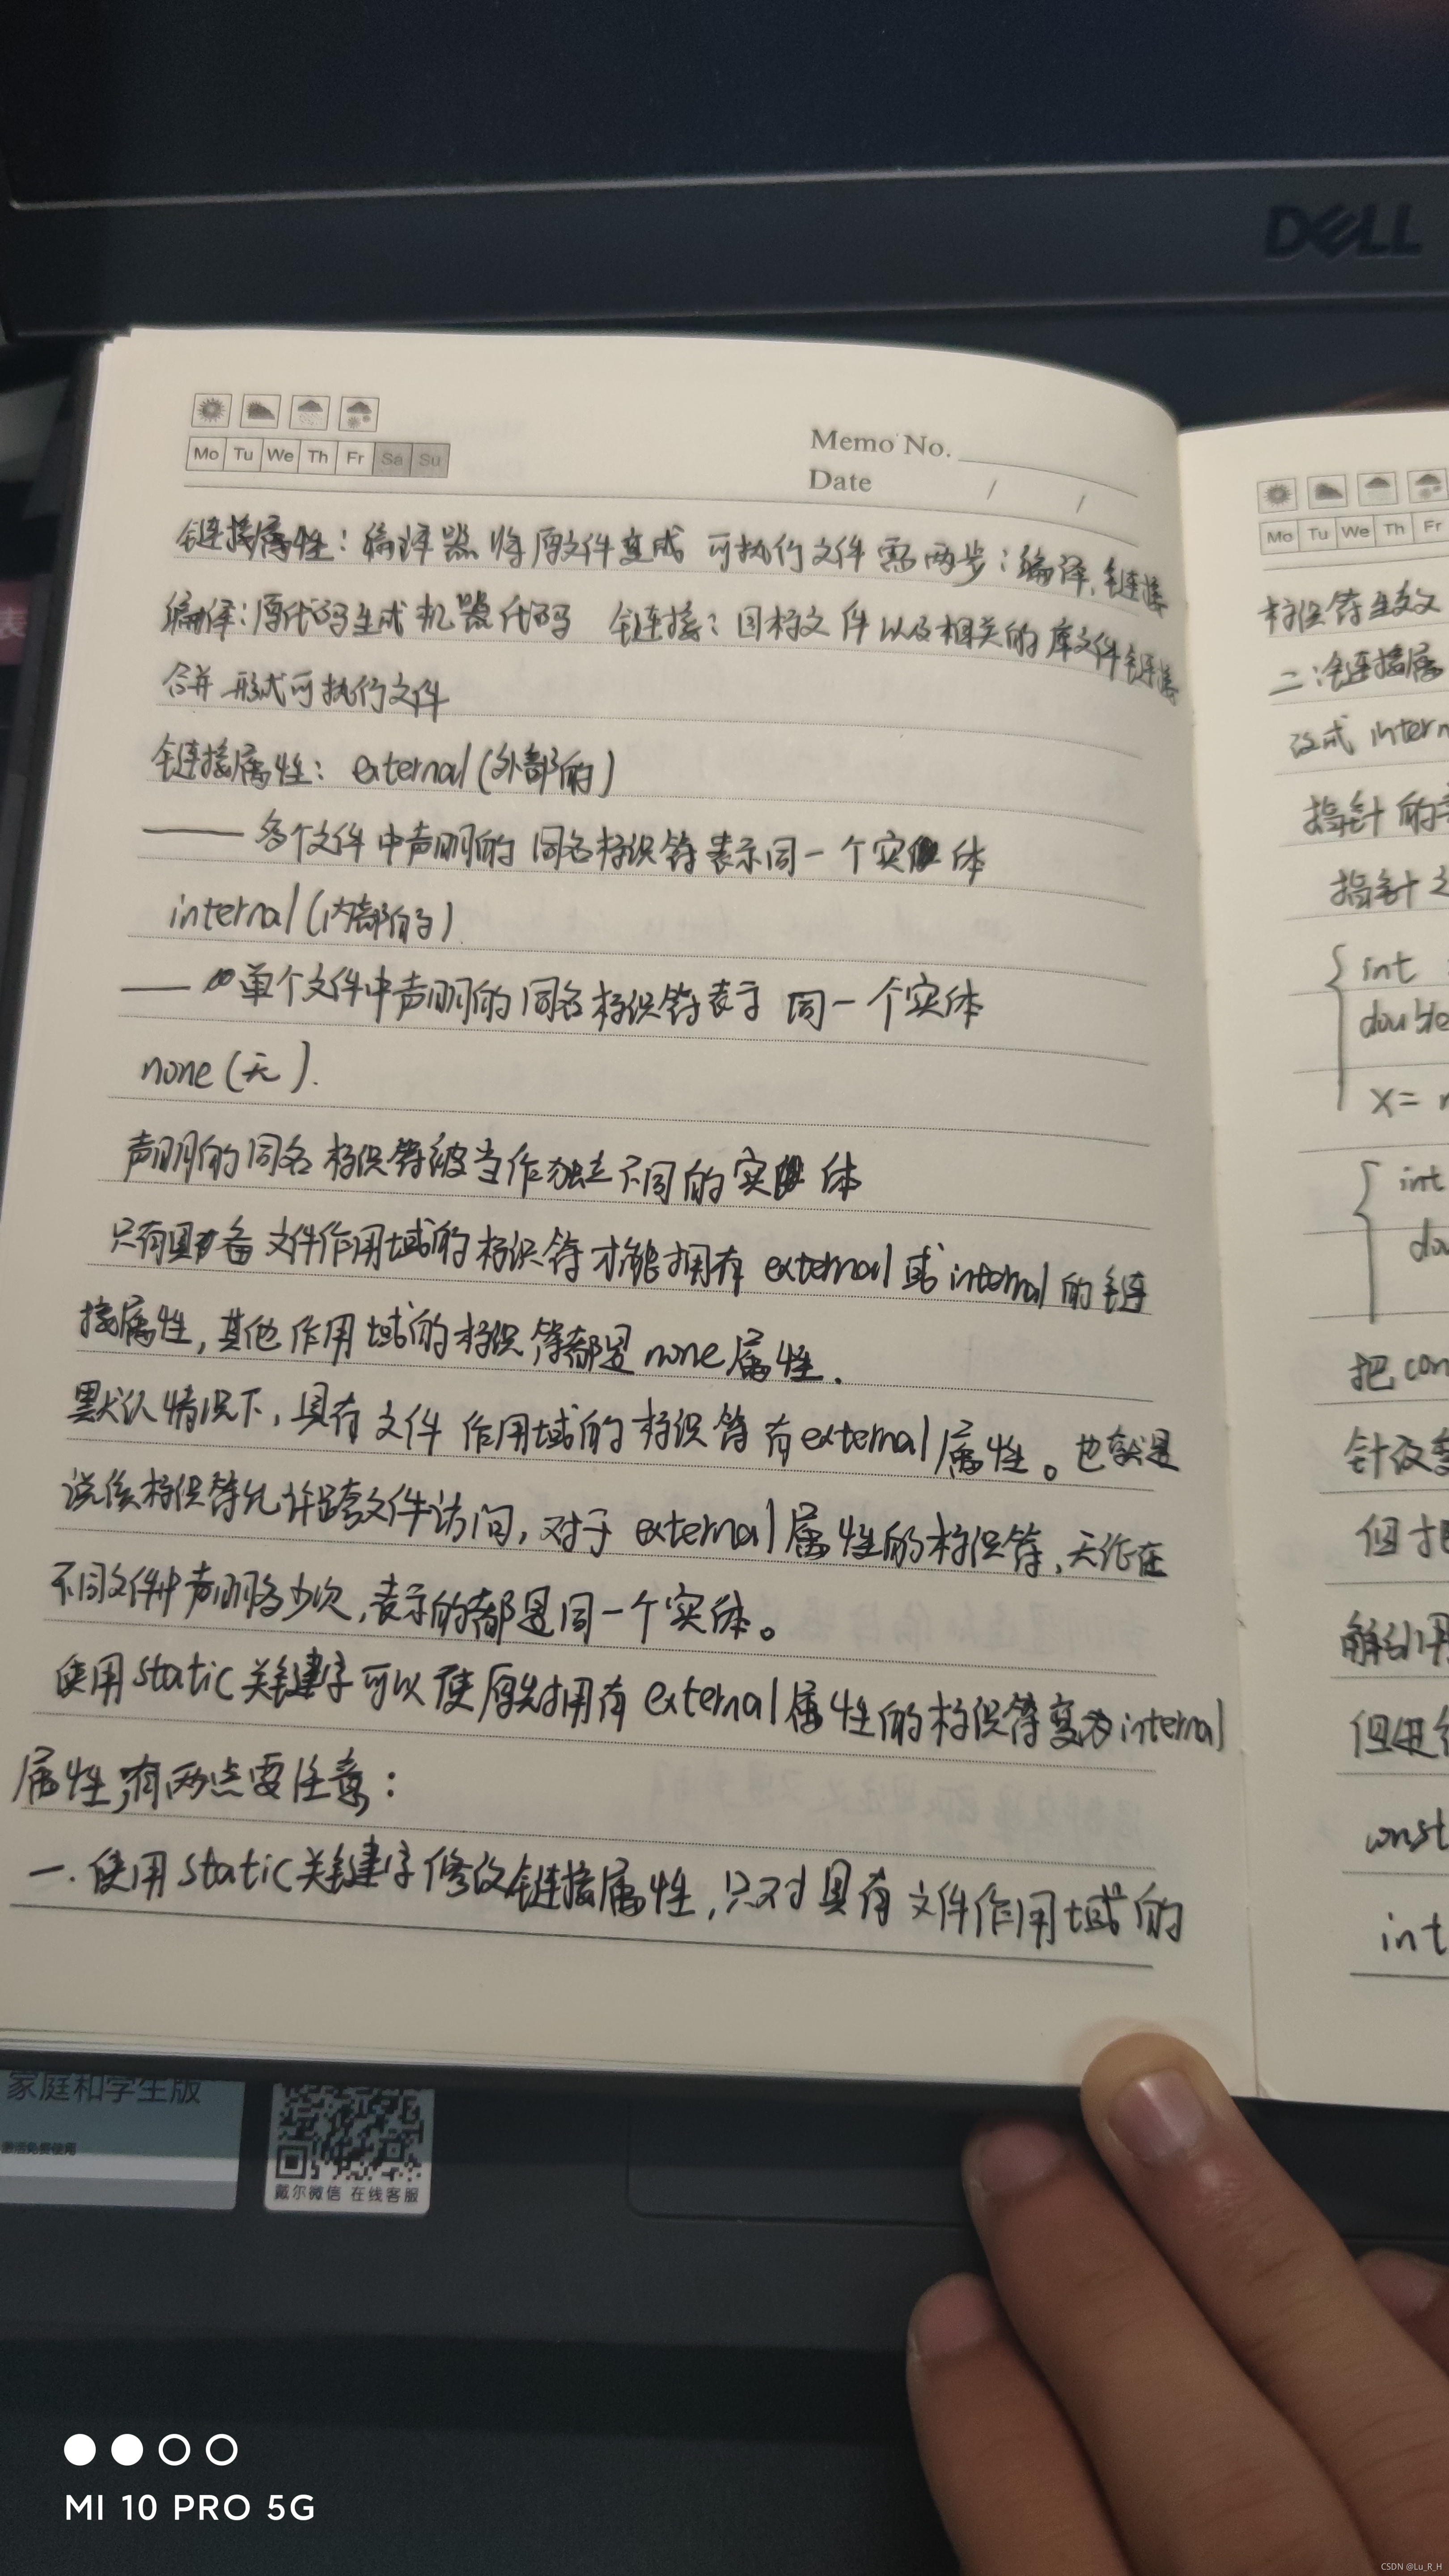 DELL
Mo Tu We Th Fr Sa Su
Memo No.
Date / /
链接属性：编译器将原文件变成 可执行文件需两步：编译，链接
编译：原代码生成机器代码 链接：目标文件以及相关的库文件链接
合并形式可执行文件
链接属性：external(外部的)
—— 多个文件中声明的同名标识符表示同一个实体
internal(内部的)
—— 单个文件中声明的同名标识符表示同一个实体
none(无).
声明的同名标识符被当作独立不同的实体
只有具备文件作用域的标识符才能拥有external或internal的链
接属性，其他作用域的标识符都是none属性.
默认情况下，具有文件作用域的标识符有external属性。也就是
说该标识符允许跨文件访问，对于external属性的标识符，无论在
不同文件中声明多少次，表示的都是同一个实体。
使用static关键字可以使原先拥有external属性的标识符变为internal
属性，有两点要注意：
一.使用static关键字修改链接属性，只对具有文件作用域的
Mo Tu We Th Fr
标识符生效
二：链接属
改成 intern
指针的
指针
int
double
x=
int
dou
把con
针改变
但
解引用
但进行
const
int
家庭和学生版
激活免费使用
戴尔微信 在线客服
MI 10 PRO 5G
CSDN @Lu_R_H